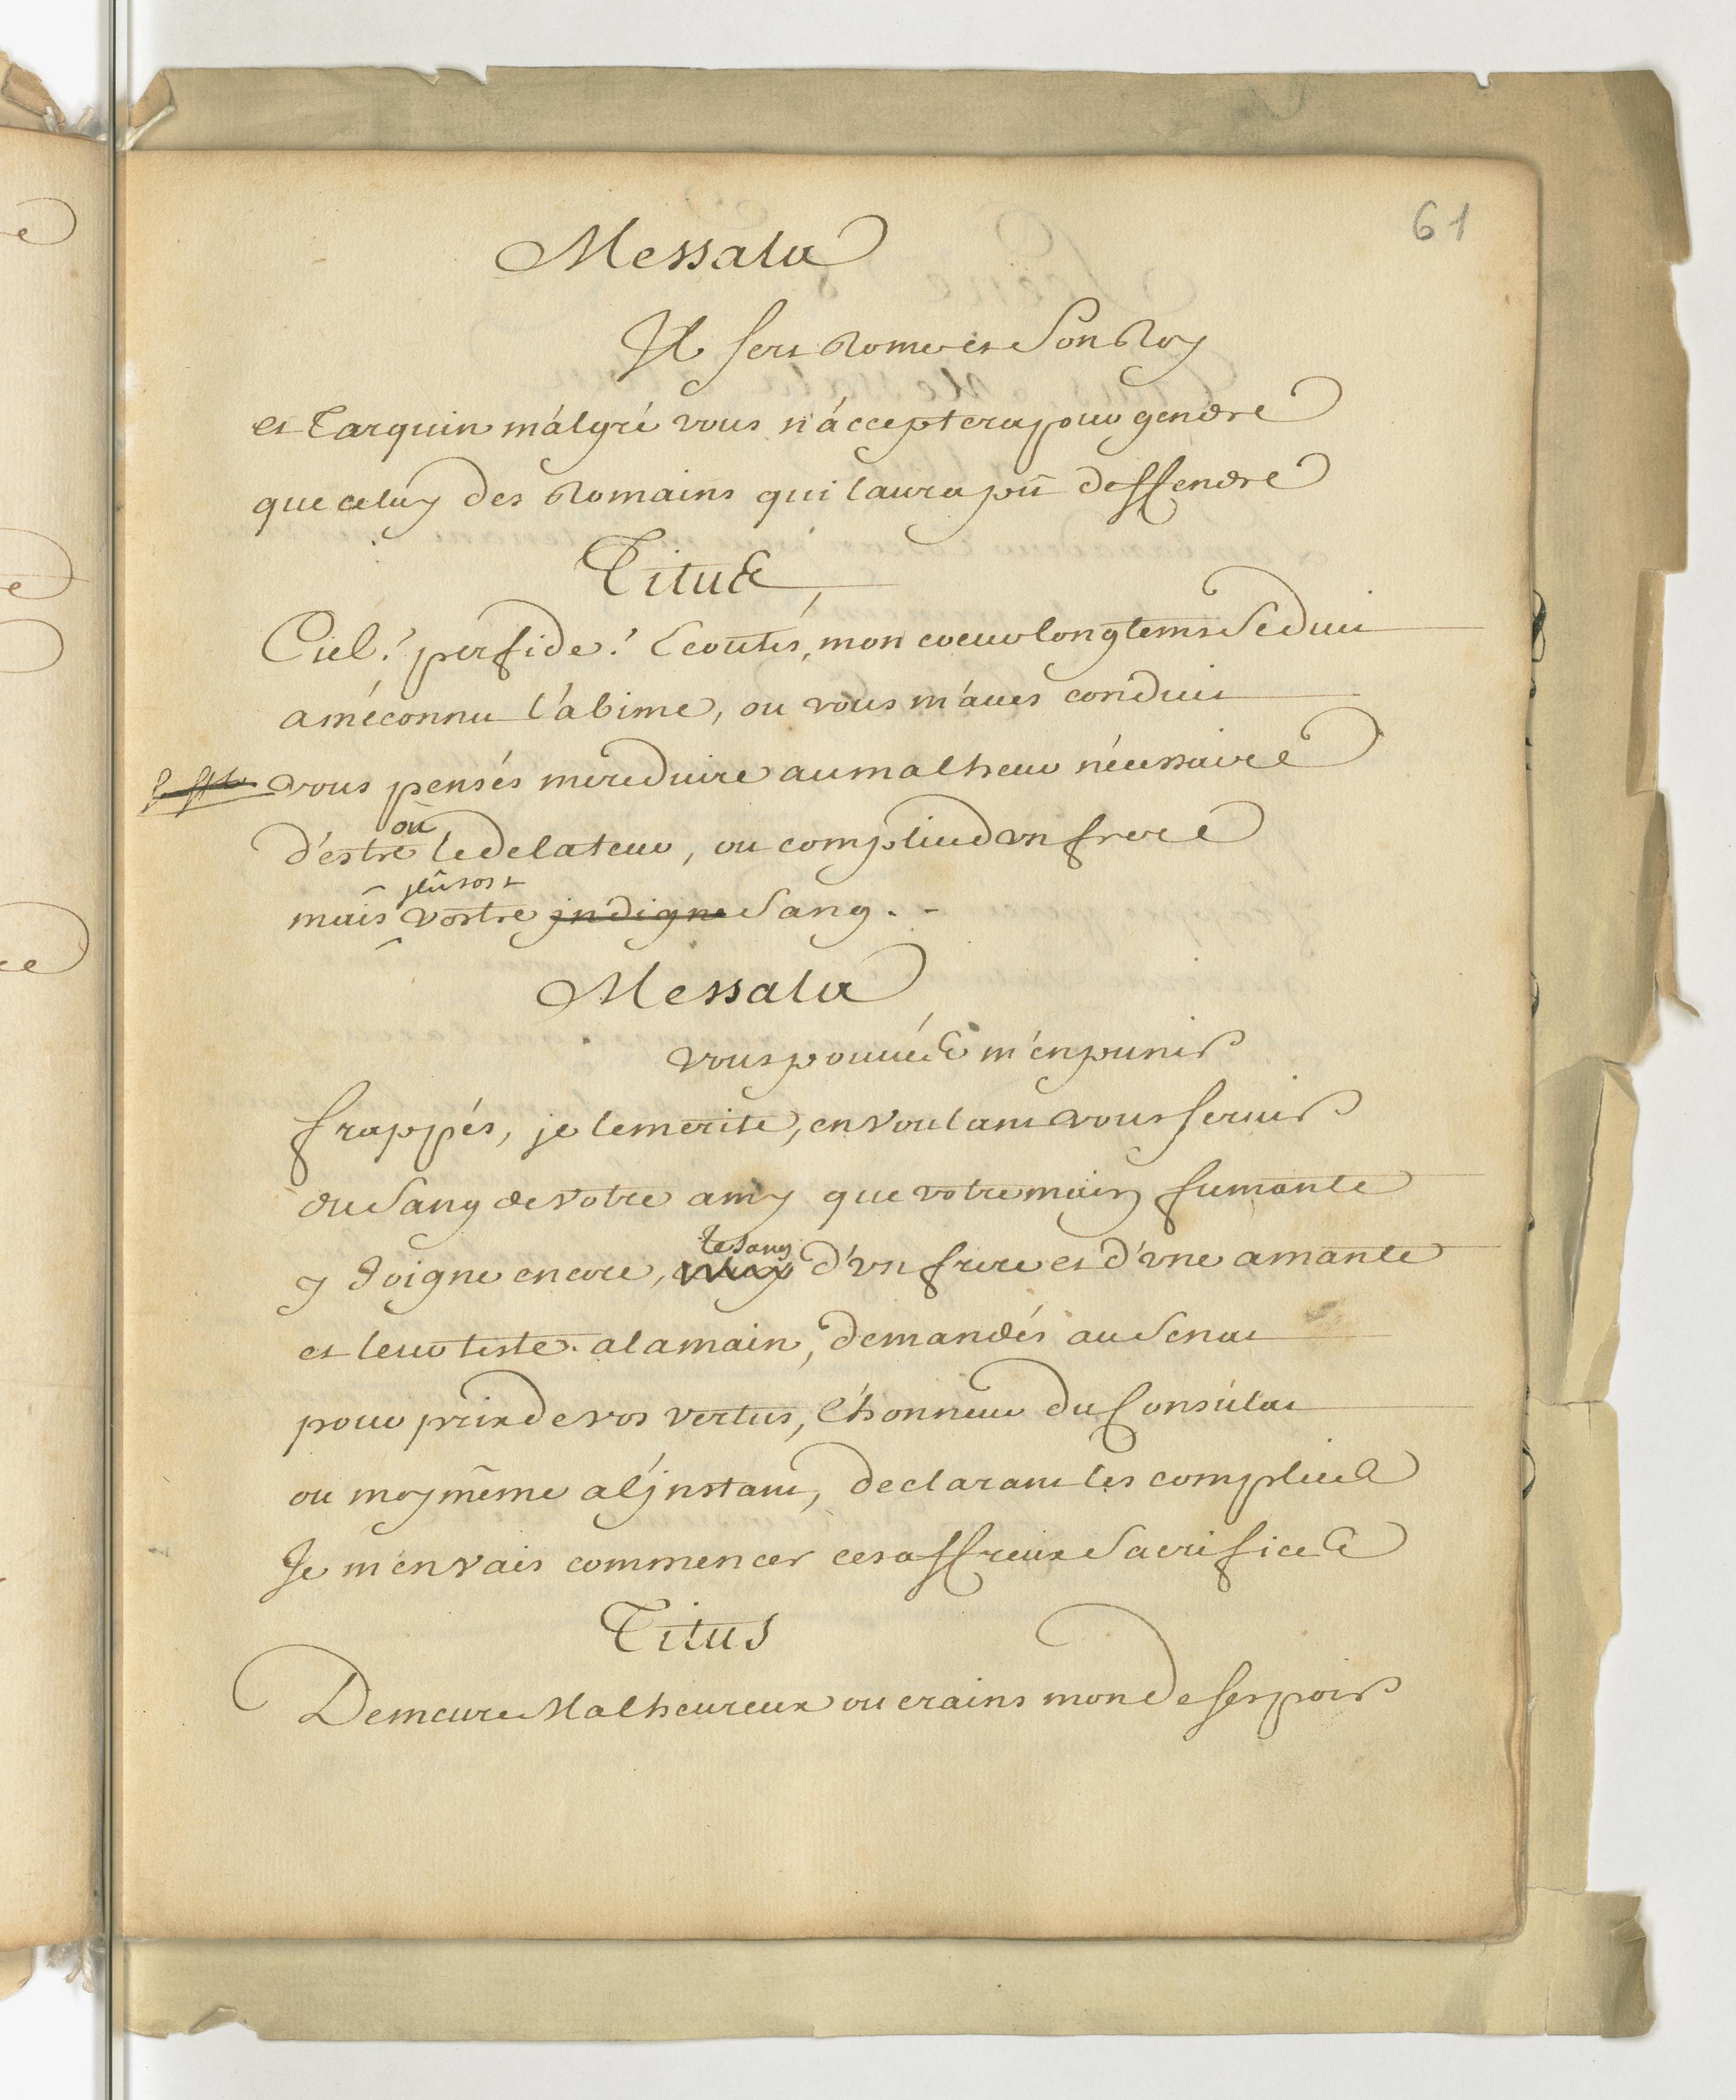 61
Messala
Il sert Rome et Son Roy
et Tarquin málgré vous n'áccepterá pour gendre
que celuy des Romains qui laura pû deffendre
Titus
Ciel! perfide! Ecoutés, mon coeur longtems Seduit
a méconnu l'abime, ou vous m'aues conduit
vous pensés me reduire au malheur nécessaire
ou
d'estre le delateur, ou complice d'vn frere
plûtost
mais vostre jndigne Sang . -
Messala
vous pouués m'en punir
frappés, je le merite, en voulant vous seruir
du Sang de votre amy que votre main fumante
le sang
y Joigne encore, d'vn frere et d'vne amante
et leur teste a la main, demandés au Senat
pour prix de vos vertus, l'honneur du Consulat
ou moy même a l'jnstant, declarant les complices
Je m'en vais commencer ces affreux Sacrifices
Titus
Demeure Malheureux ou crains mon desespoir